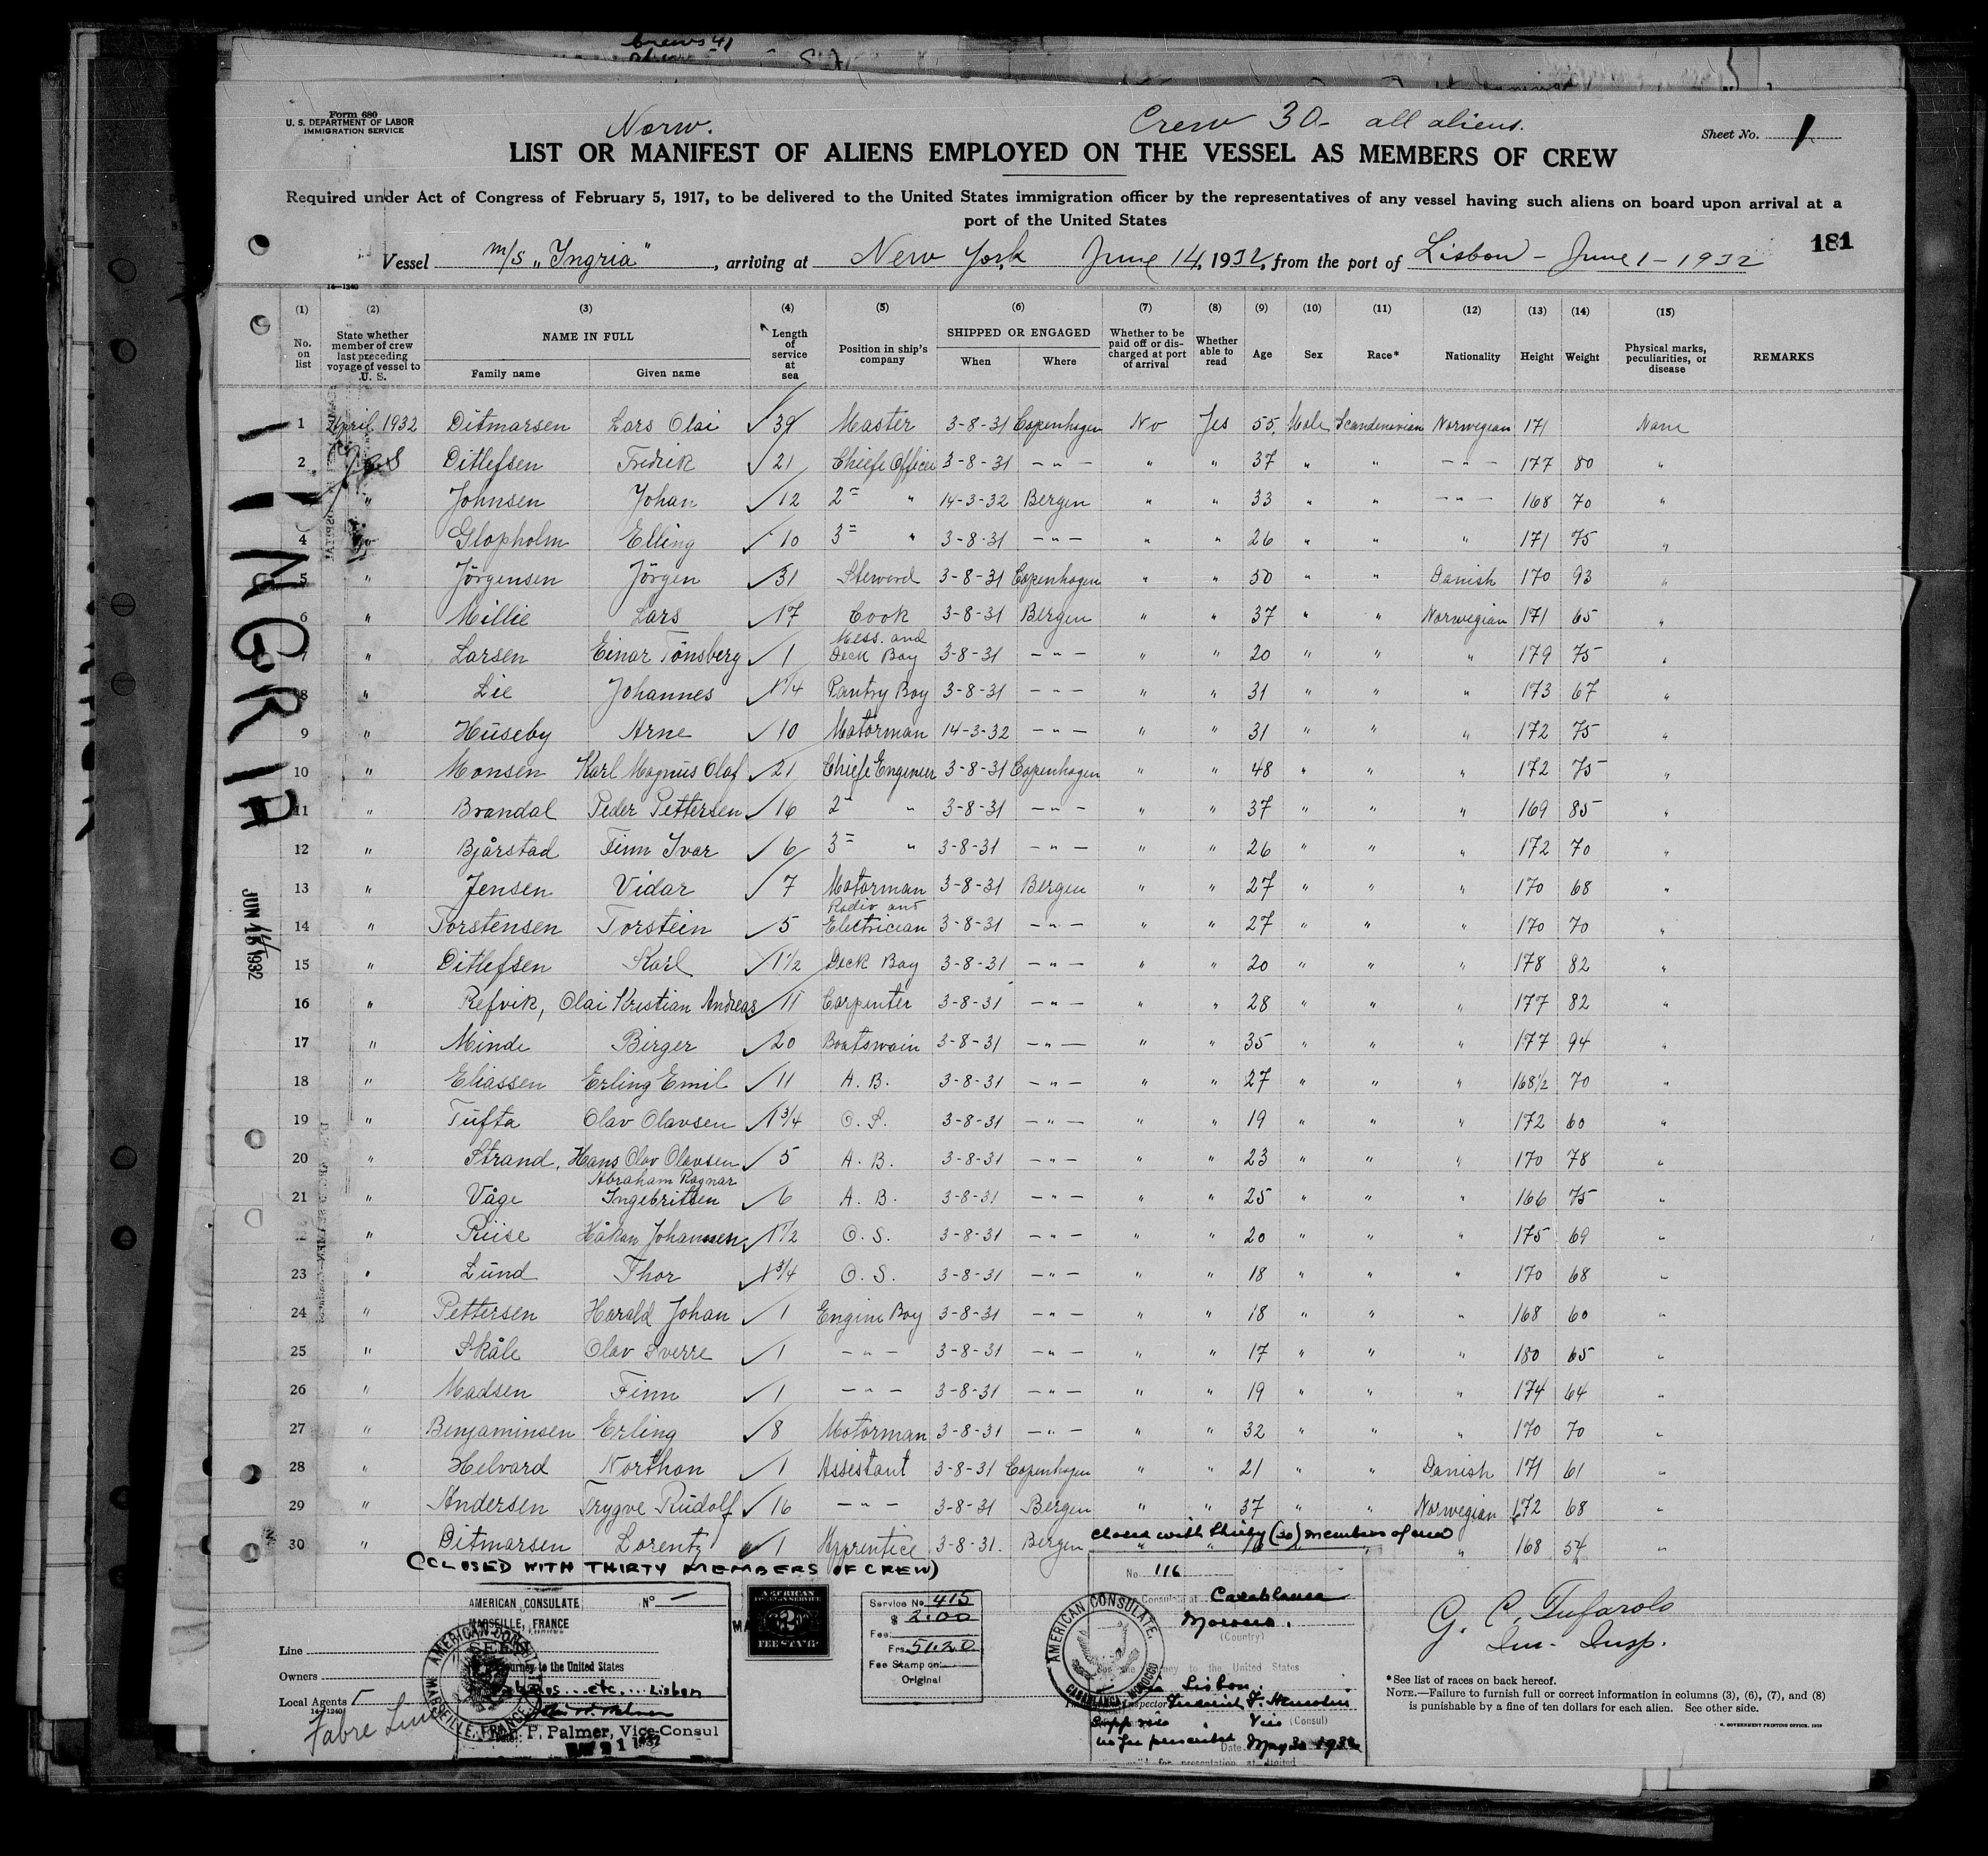 Form 680
U. S. DEPARTMENT OF LABOR
IMMIGRATION SERVICE
Norw.
Crew 30 - all aliens.
Sheet No. 1
LIST OR MANIFEST OF ALIENS EMPLOYED ON THE VESSEL AS MEMBERS OF CREW
Required under Act of Congress of February 5, 1917, to be delivered to the United States immigration officer by the representatives of any vessel having such aliens on board upon arrival at a
port of the United States
181
Vessel m/s „Ingria", arriving at New York June 14, 1932, from the port of Lisbon - June 1 - 1932
14—1240
(1) (2) (3) (4) (5) (6) (7) (8) (9) (10) (11) (12) (13) (14) (15)
No. on list | State whether member of crew last preceding voyage of vessel to U. S. | NAME IN FULL | Family name | Given name | Length of service at sea | Position in ship's company | SHIPPED OR ENGAGED | When | Where | Whether to be paid off or discharged at port of arrival | Whether able to read | Age | Sex | Race* | Nationality | Height | Weight | Physical marks, peculiarities, or disease | REMARKS
1 April 1932 Ditmarsen Lars Olai 39 Master 3-8-31 Copenhagen No Yes 55 Male Scandinavian Norwegian 171 None
2 Ditlefsen Fredrik 21 Chiefe Officer 3-8-31 -"- " " 37 " " -"- 177 80 "
" Johnsen Johan 12 2= " 14-3-32 Bergen " " 33 " " -"- 168 70 "
4 " Glopholm Erling 10 3= " 3-8-31 -"- " " 26 " " " 171 75 "
5 " Jörgensen Jörgen 31 Steward 3-8-31 Copenhagen " " 50 " " Danish 170 93 "
6 " Millie Lars 17 Cook 3-8-31 Bergen " " 37 " " Norwegian 171 65 "
7 " Larsen Einar Tönsberg 1 Mess. and Deck Boy 3-8-31 -"- " " 20 " " " 179 75 "
8 " Lie Johannes 1 1/4 Pantry Boy 3-8-31 -"- " " 31 " " " 173 67 "
9 " Huseby Arne 10 Motorman 14-3-32 -"- " " 31 " " " 172 75 "
10 " Monsen Karl Magnus Olaf 21 Chiefe Engineer 3-8-31 Copenhagen " " 48 " " " 172 75 "
11 " Brandal Peder Pettersen 16 2= " 3-8-31 -"- " " 37 " " " 169 85 "
12 " Bjårstad Finn Ivar 6 3= " 3-8-31 -"- " " 26 " " " 172 70 "
13 " Jensen Vidar 7 Motorman 3-8-31 Bergen " " 27 " " " 170 68 "
14 " Torstensen Torstein 5 Radio and Electrician 3-8-31 -"- " " 27 " " " 170 70 "
15 " Ditlefsen Karl 1 1/2 Deck Boy 3-8-31 -"- " " 20 " " " 178 82 "
16 " Refvik, Olai Kristian Andreas 11 Carpenter 3-8-31 -"- " " 28 " " " 177 82 "
17 " Minde Birger 20 Boatswain 3-8-31 -"- " " 35 " " " 177 94 "
18 " Eliassen Erling Emil 11 A. B. 3-8-31 -"- " " 27 " " " 168 1/2 70 "
19 " Tufta Olav Olavsen 1 3/4 O. S. 3-8-31 -"- " " 19 " " " 172 60 "
20 " Strand, Hans Olav Olavsen 5 A. B. 3-8-31 -"- " " 23 " " " 170 78 "
21 " Våge Abraham Ragnar Ingebritsen 6 A. B. 3-8-31 -"- " " 25 " " " 166 75 "
22 " Riise Håkan Johannsen 1 1/2 O. S. 3-8-31 -"- " " 20 " " " 175 69 "
23 " Lund Thor 1 3/4 O. S. 3-8-31 -"- " " 18 " " " 170 68 "
24 " Pettersen Harald Johan 1 Engine Boy 3-8-31 -"- " " 18 " " " 168 60 "
25 " Skåle Olav Sverre 1 -"- 3-8-31 -"- " " 17 " " " 180 65 "
26 " Madsen Finn 1 -"- 3-8-31 -"- " " 19 " " " 174 64 "
27 " Benjaminsen Erling 8 Motorman 3-8-31 -"- " " 32 " " " 170 70 "
28 " Helvard Northon 1 Assistant 3-8-31 Copenhagen " " 21 " " Danish 171 61 "
29 " Andersen Trygve Rudolf 16 -"- 3-8-31 Bergen " " 37 " " Norwegian 172 68 "
closed with thirty (30) members of crew
30 " Ditmarsen Lorentz 1 Apprentice 3-8-31. Bergen " " " " " 168 54 "
(CLOSED WITH THIRTY MEMBERS OF CREW)
INGRIA
JUN 1932
AMERICAN CONSULATE No -
MARSEILLE, FRANCE
SEEN
journey to the United States
etc. Lisbon
P. Palmer, Vice-Consul
MAY 21 1932
AMERICAN CONSULATE MARSEILLE, FRANCE
Line
Owners
Local Agents
14—1240
Fabre Line
AMERICAN
FOREIGN SERVICE
$2.00
FEE STAMP
Service No. 415
$ 2.00
Fee:
Frs. 51.20
Fee Stamp on:
Original
No. 116
Consulate at Casablanca
Morocco.
(Country)
journey to the United States
Lisbon.
AMERICAN CONSULATE, CASABLANCA, MOROCCO
Vice (Consul)
no fee prescribed Date May 30 1932
G. C. Tufarolo
Im. Insp.
*See list of races on back hereof.
NOTE.—Failure to furnish full or correct information in columns (3), (6), (7), and (8)
is punishable by a fine of ten dollars for each alien. See other side.